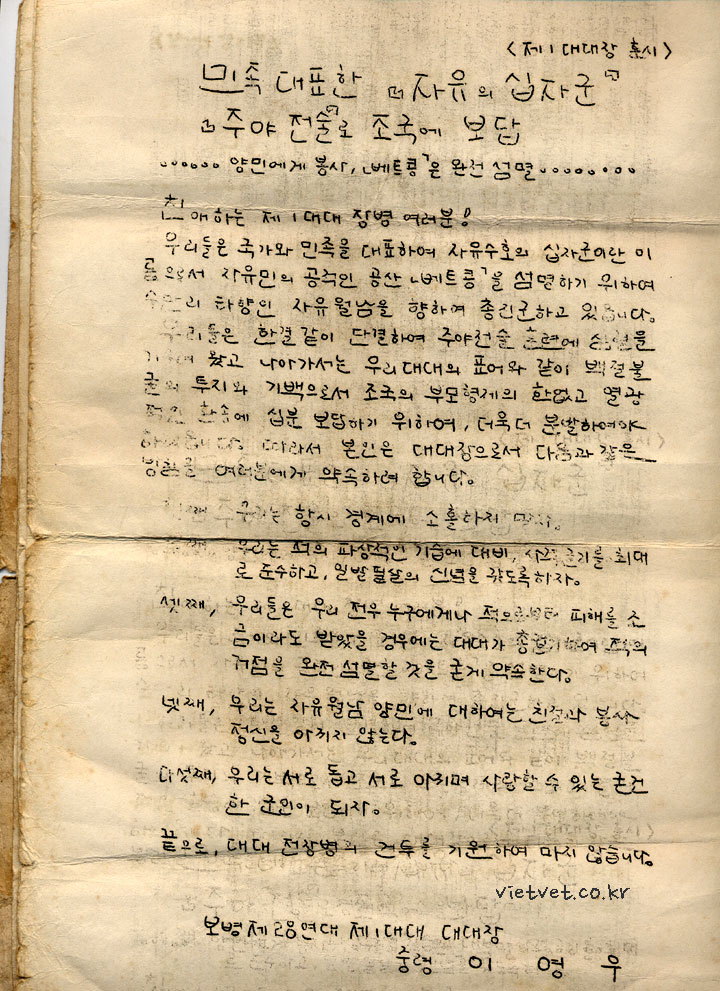 〈제1대대장 훈시〉
민족 대표한 "자유의 십자군"
"주야 전술"로 조국에 보답
...... 양민에게 봉사, "베트콩"은 완전 섬멸 .........
친애하는 제1대대 장병 여러분!
우리들은 국가와 민족을 대표하여 자유수호의 십자군이란 이
름으로서 자유민의 공적인 공산 "베트콩"을 섬멸하기 위하여
수만리 타향인 자유월남을 향하여 총진군하고 있읍니다.
우리들은 한결같이 단결하여 주야전술 훈련에 심혈을
기우려 왔고 나아가서는 우리대대의 표어와 같이 백절불
굴의 투지와 기백으로서 조국의 부모형제의 한없고 열광
적인 환송에 십분 보답하기 위하여, 더욱더 분발하여야
하겠읍니다. 따라서 본인은 대대장으로서 다음과 같은
여러분에게 약속하려 합니다.
우리는 항시 경계에 소홀하지 말자.
우리는 적의 파상적인 기습에 대비, 사격군기를 최대
로 준수하고, 일발필살의 신념을 갖도록하자.
셋째, 우리들은 우리 전우 누구에게나 적으로부터 피해를 조
금이라도 받았을 경우에는 대대가 총궐기하여 적의
거점을 완전 섬멸할 것을 굳게 약속한다.
넷째, 우리는 자유월남 양민에 대하여는 친절과 봉사
정신을 아끼지 않는다.
다섯째, 우리는 서로 돕고 서로 아끼며 사랑할 수 있는 굳건
한 군인이 되자.
끝으로, 대대 전장병의 건투를 기원하여 마지 않습니다.
vietvet.co.kr
보병제28연대 제1대대 대대장
중령 이 영 우